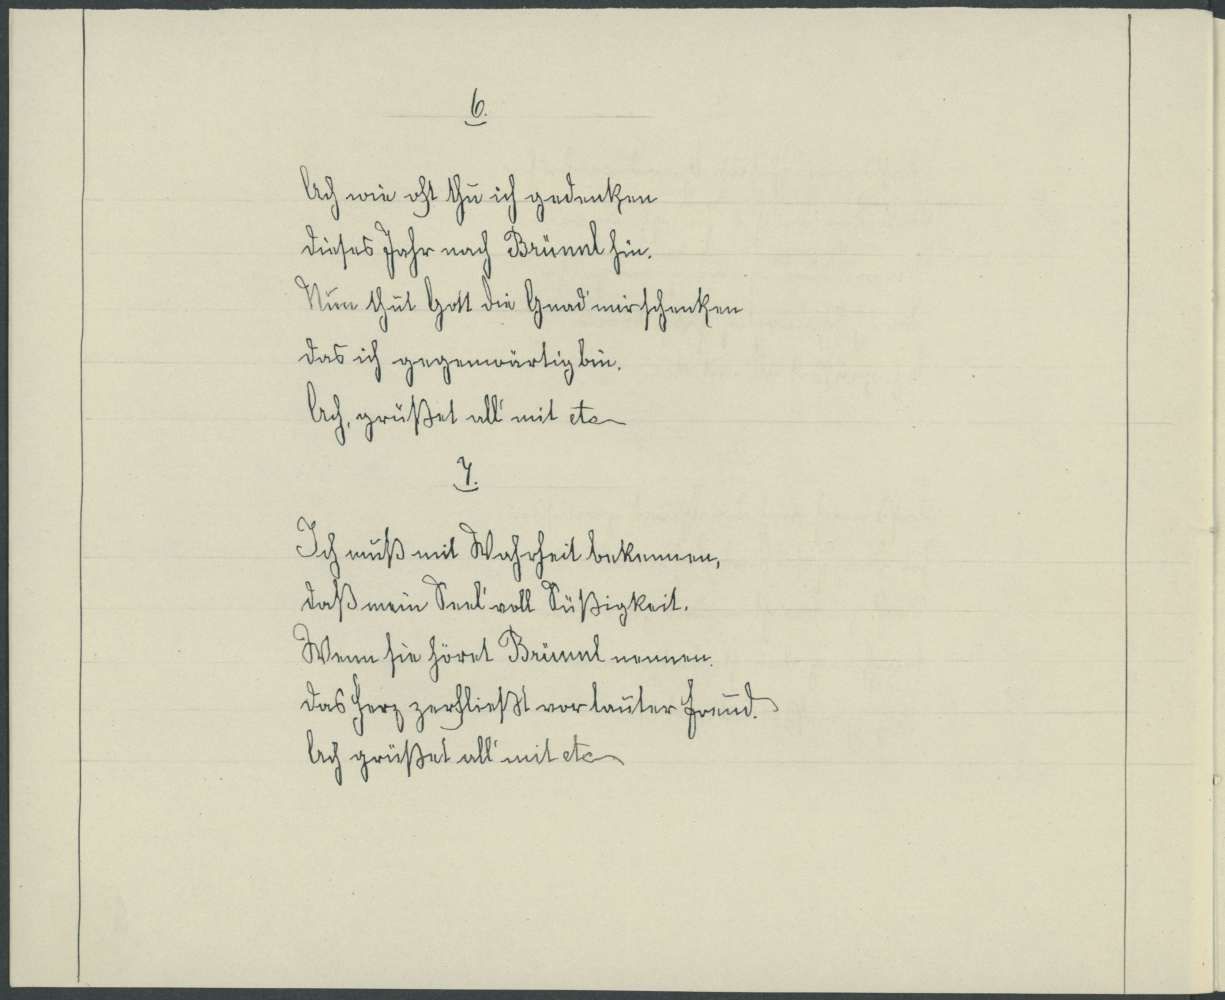 6.
Ach wie oft thu ich gedenken
dieses Jahr nach Brünnl hin.
Nun thut Gott die Gnad' mir schenken
das ich gegenwärtig bin.
Ach, grüßet all' mit etc
7.
Ich muß mit Wahrheit bekennen,
daß mein Seel' voll Süßigkeit.
Wenn sie höret Brünnl nennen.
das Herz zerfließt vor lauter Freud.
Ach grüßet all' mit etc